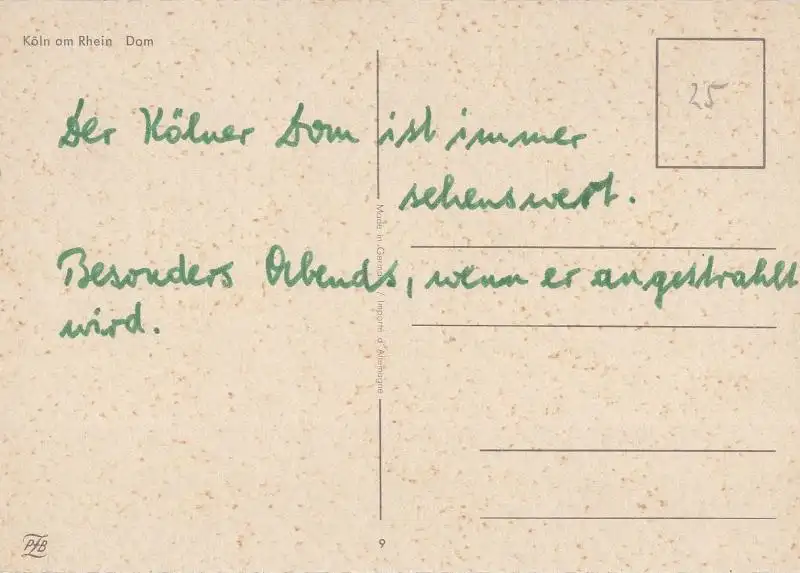 Köln am Rhein Dom
25
Der Kölner Dom ist immer
sehenswert.
Besonders Abends, wenn er angestrahlt
wird.
Made in Germany / Importé d'Allemagne
PFB
9